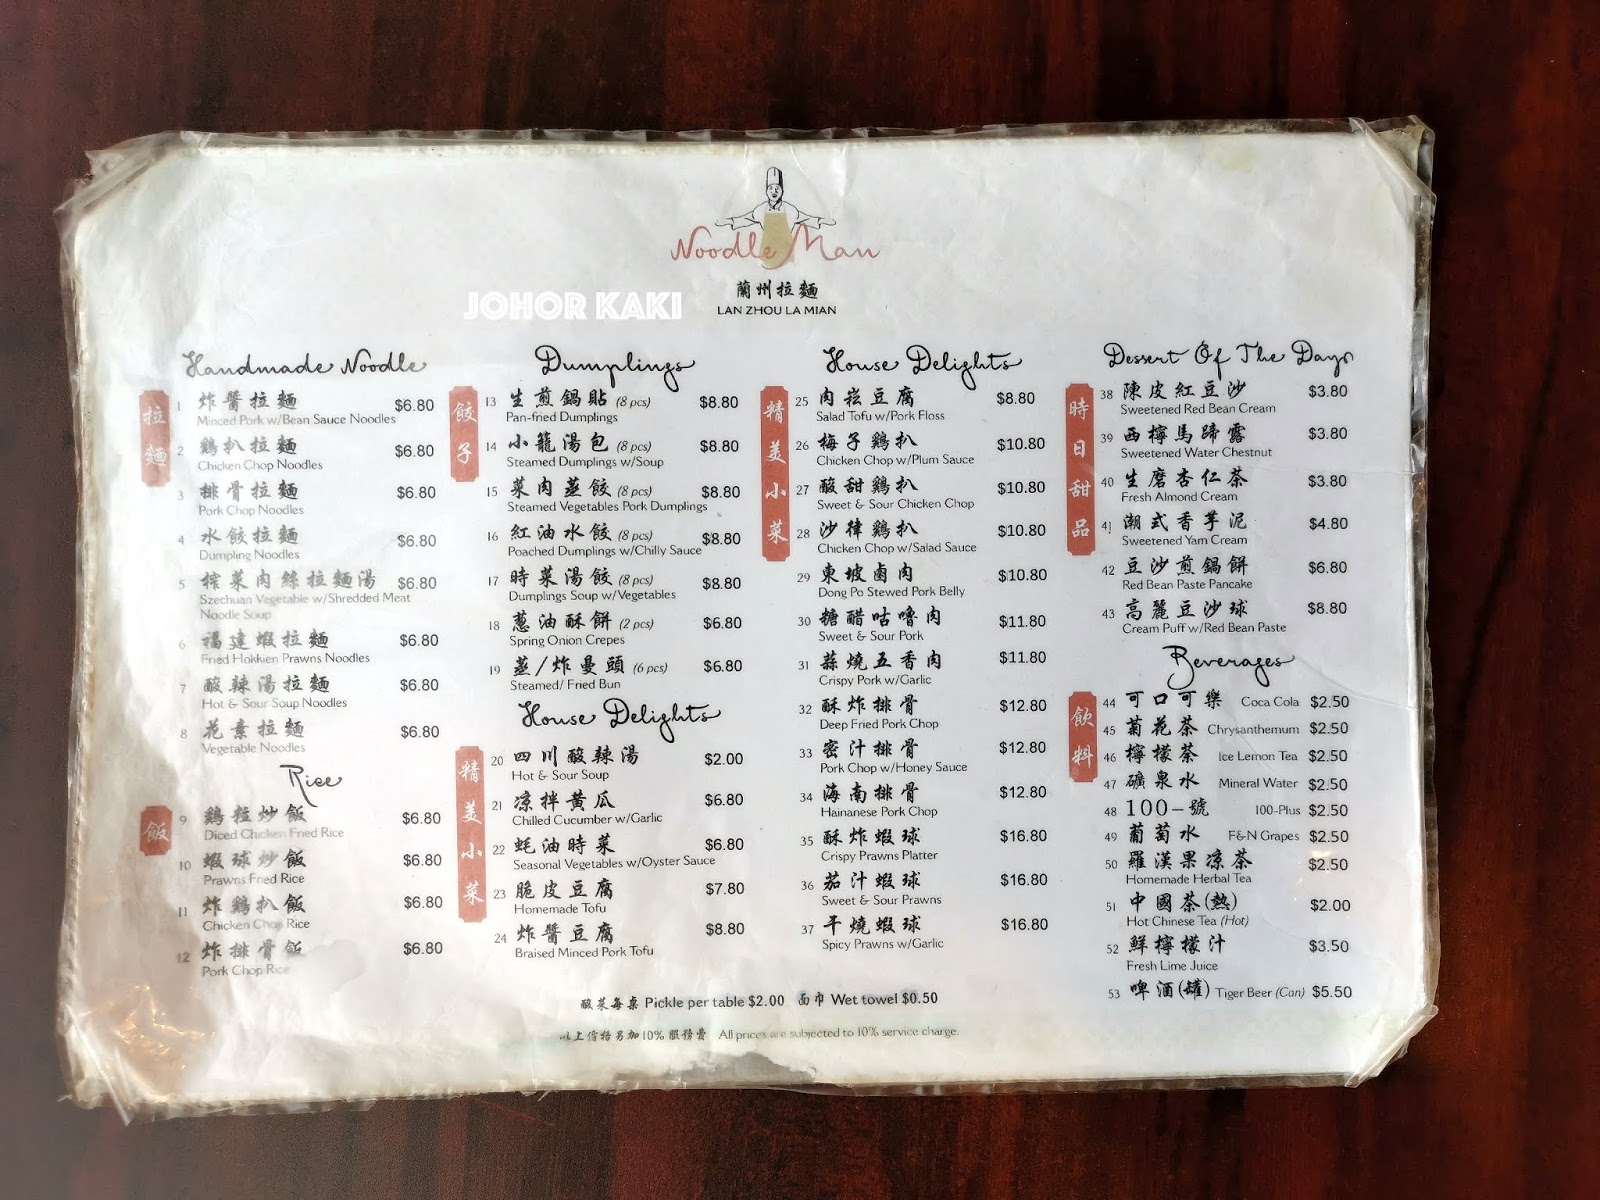 Noodle Man
蘭州拉麵
LAN ZHOU LA MIAN
JOHOR KAKI
Handmade Noodle
拉麵
1 炸醬拉麵 $6.80
Minced Pork w/Bean Sauce Noodles
2 鷄扒拉麵 $6.80
Chicken Chop Noodles
3 排骨拉麵 $6.80
Pork Chop Noodles
4 水餃拉麵 $6.80
Dumpling Noodles
5 榨菜肉絲拉麵湯 $6.80
Szechuan Vegetable w/Shredded Meat
Noodle Soup
6 福建蝦拉麵 $6.80
Fried Hokkien Prawns Noodles
7 酸辣湯拉麵 $6.80
Hot & Sour Soup Noodles
8 花素拉麵 $6.80
Vegetable Noodles
Rice
飯
9 鷄粒炒飯 $6.80
Diced Chicken Fried Rice
10 蝦球炒飯 $6.80
Prawns Fried Rice
11 炸鷄扒飯 $6.80
Chicken Chop Rice
12 炸排骨飯 $6.80
Pork Chop Rice
Dumplings
餃子
13 生煎鍋貼 (8 pcs) $8.80
Pan-fried Dumplings
14 小籠湯包 (8 pcs) $8.80
Steamed Dumplings w/Soup
15 菜肉蒸餃 (8 pcs) $8.80
Steamed Vegetables Pork Dumplings
16 紅油水餃 (8 pcs) $8.80
Poached Dumplings w/Chilly Sauce
17 時菜湯餃 (8 pcs) $8.80
Dumplings Soup w/Vegetables
18 蔥油酥餅 (2 pcs) $6.80
Spring Onion Crepes
19 蒸/炸曼頭 (6 pcs) $6.80
Steamed/ Fried Bun
House Delights
精美小菜
20 四川酸辣湯 $2.00
Hot & Sour Soup
21 凉拌黄瓜 $6.80
Chilled Cucumber w/Garlic
22 蚝油時菜 $6.80
Seasonal Vegetables w/Oyster Sauce
23 脆皮豆腐 $7.80
Homemade Tofu
24 炸醬豆腐 $8.80
Braised Minced Pork Tofu
House Delights
精美小菜
25 肉崧豆腐 $8.80
Salad Tofu w/Pork Floss
26 梅子鷄扒 $10.80
Chicken Chop w/Plum Sauce
27 酸甜鷄扒 $10.80
Sweet & Sour Chicken Chop
28 沙律鷄扒 $10.80
Chicken Chop w/Salad Sauce
29 東坡鹵肉 $10.80
Dong Po Stewed Pork Belly
30 糖醋咕嚕肉 $11.80
Sweet & Sour Pork
31 蒜燒五香肉 $11.80
Crispy Pork w/Garlic
32 酥炸排骨 $12.80
Deep Fried Pork Chop
33 密汁排骨 $12.80
Pork Chop w/Honey Sauce
34 海南排骨 $12.80
Hainanese Pork Chop
35 酥炸蝦球 $16.80
Crispy Prawns Platter
36 茄汁蝦球 $16.80
Sweet & Sour Prawns
37 干燒蝦球 $16.80
Spicy Prawns w/Garlic
Dessert Of The Days
時日甜品
38 陳皮紅豆沙 $3.80
Sweetened Red Bean Cream
39 西檸馬蹄露 $3.80
Sweetened Water Chestnut
40 生磨杏仁茶 $3.80
Fresh Almond Cream
41 潮式香芋泥 $4.80
Sweetened Yam Cream
42 豆沙煎鍋餅 $6.80
Red Bean Paste Pancake
43 高麗豆沙球 $8.80
Cream Puff w/Red Bean Paste
Beverages
飲料
44 可口可樂 Coca Cola $2.50
45 菊花茶 Chrysanthemum $2.50
46 檸檬茶 Ice Lemon Tea $2.50
47 礦泉水 Mineral Water $2.50
48 100-號 100-Plus $2.50
49 葡萄水 F&N Grapes $2.50
50 羅漢果凉茶 $2.50
Homemade Herbal Tea
51 中國茶(熱) $2.00
Hot Chinese Tea (Hot)
52 鮮檸檬汁 $3.50
Fresh Lime Juice
53 啤酒(罐) Tiger Beer (Can) $5.50
酸菜每桌 Pickle per table $2.00 面巾 Wet towel $0.50
以上價格另加10% 服務費 All prices are subjected to 10% service charge.